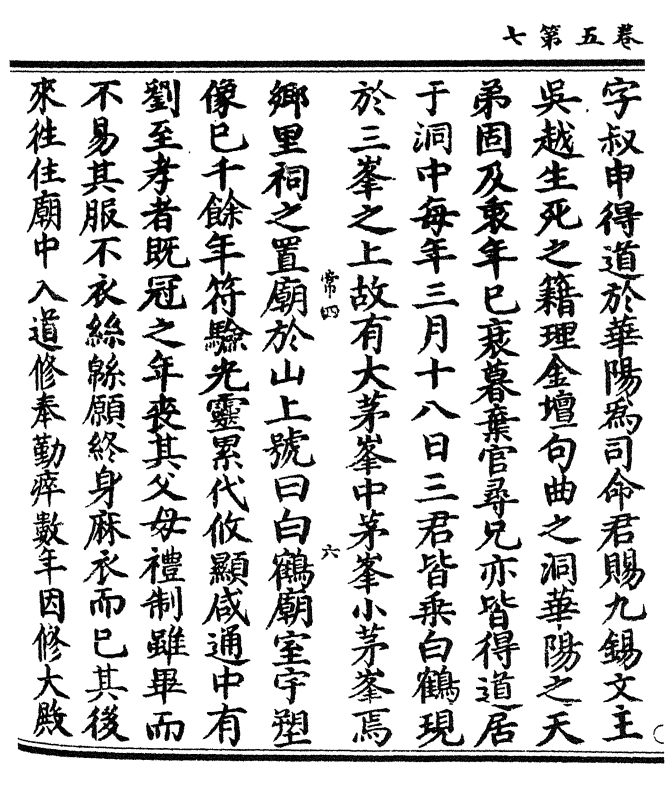 卷五第七
字叔申得道於華陽爲司命君賜九錫文主
吳越生死之籍理金壇句曲之洞華陽之天
弟固及衷年已衰暮棄官尋兄亦皆得道居
于洞中每年三月十八日三君皆乘白鶴現
於三峯之上故有大茅峯中茅峯小茅峯焉
常四
六
鄉里祠之置廟於山上號曰白鶴廟室宇塑
像已千餘年符驗光靈累代攸顯咸通中有
劉至孝者既冠之年喪其父母禮制雖畢而
不易其服不衣絲緜願終身麻衣而已其後
來往住廟中入道修奉勤瘁數年因修大殿